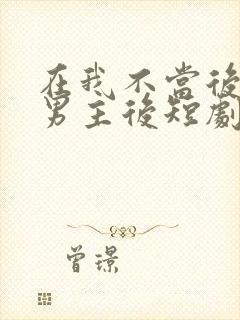 在我不當後
男主後短劇
曾璟